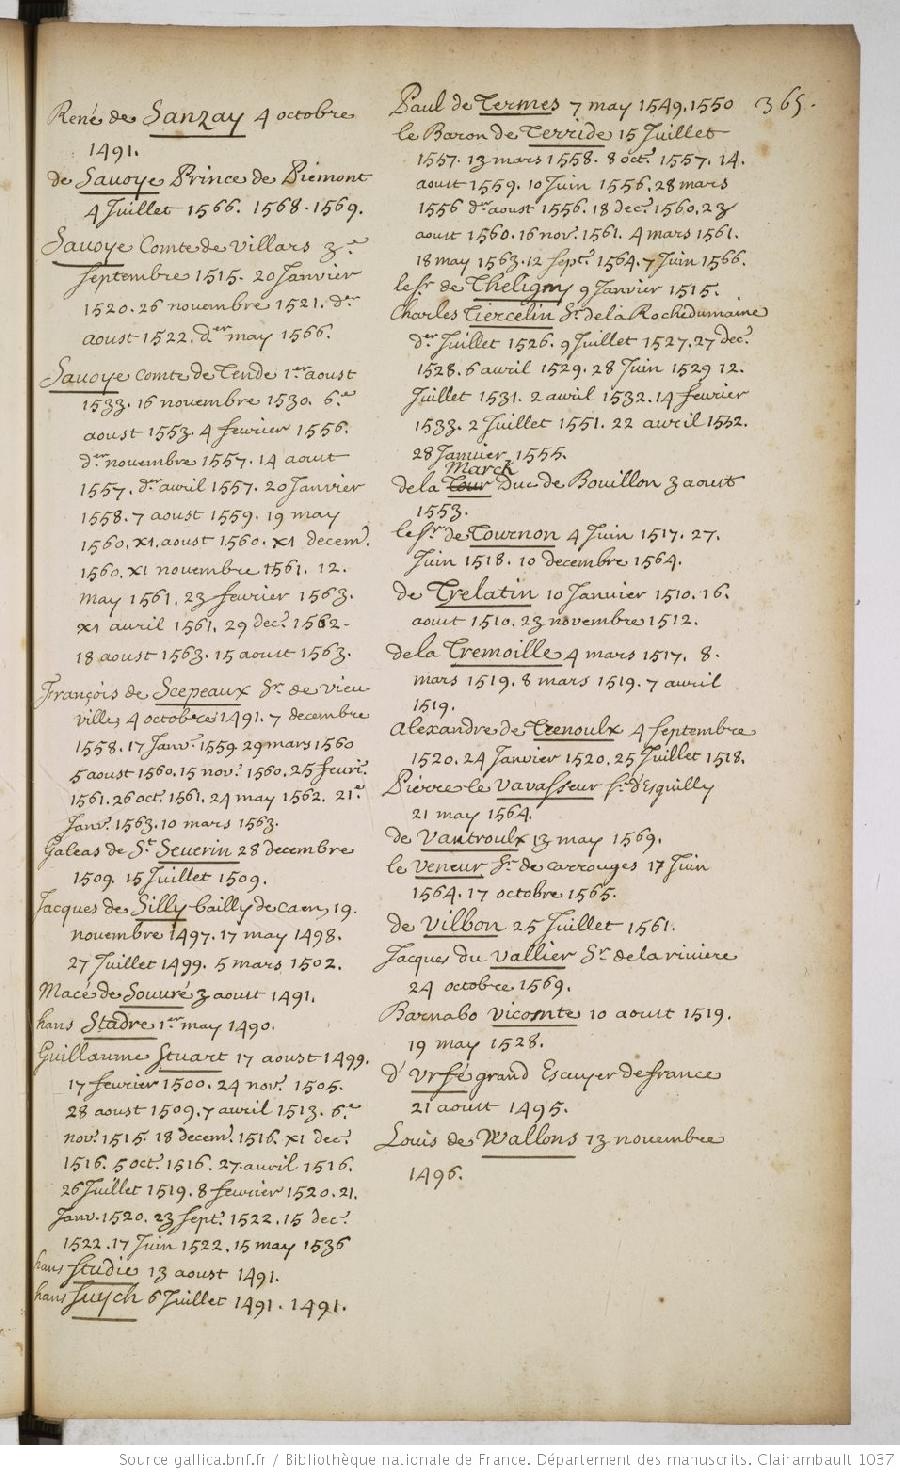 René de Sanzay 4 octobre
1491.
de Savoye Prince de Piemont
4 Juillet 1566. 1568-1569.
Savoye Comte de Villars 3.e
septembre 1515. 20 Janvier
1520. 26 novembre 1521. der
aoust 1522. der may 1566.
Savoye comte de Tende 1er aoust
1533. 16 novembre 1530. 6.e
aoust 1553. 4 fevrier 1556.
der novembre 1557. 14 aout
1557. der avril 1557. 20 Janvier
1558. 7 aoust 1559. 19 may
1560. x1. aoust 1560. x1 decem.
1560. x1 novembre 1561. 12.
may 1561. 23 fevrier 1563.
x1 avril 1561. 29 dec.e 1562-
18 aoust 1563. 15 aoust 1563.
François de Scepeaux Sr. de vieu
ville, 4 octobre 1491. 7 decembre
1558. 17 Janv. 1559. 29 mars 1560
5 aoust 1560. 15 nov. 1560. 25 fevri.
1561. 26 oct. 1561. 24 may 1562. 21.e
Janv. 1563. 10 mars 1563.
Galeas de St. Severin 28 decembre
1509. 15 Juillet 1509.
Jacques de Silly bailly de Caen, 19.
novembre 1497. 17 may 1498.
27 Juillet 1499. 5 mars 1502.
Macé de Souvré 3 aoust 1491.
hans Stadre 1er may 1490.
Guillaume Stuart 17 aoust 1499.
17 fevrier 1500. 24 nov. 1505.
28 aoust 1509. 7 avril 1513. 6.e
nov. 1515. 18 decem. 1516. x1 dec.
1516. 5 oct. 1516. 27 avril 1516.
26 Juillet 1519. 8 fevrier 1520. 21.
Janv. 1520. 23 sept. 1522. 15 dec.
1522. 17 Juin 1522. 15 may 1536
hans Studie 13 aoust 1491.
hans Suych 6 Juillet 1491. 1491.
Paul de Termes 7 may 1549. 1550 365.
le Baron de Terride 15 Juillet
1557. 13 mars 1558. 8 oct. 1557. 14.
aoust 1559. 10 Juin 1556. 28 mars
1556 der aoust 1556. 18 dec. 1560. 23
aoust 1560. 16 nov. 1561. 4 mars 1561.
18 may 1563. 12 sept. 1564. 7 Juin 1566.
le Sr. de Theligny 9 Janvier 1515.
Charles Tiercelin Sr. de la Rochedumaine
der Juillet 1526. 9 Juillet 1527. 27 dec.
1528. 6 avril 1529. 28 Juin 1529 12.
Juillet 1531. 2 avril 1532. 14 fevrier
1533. 2 Juillet 1551. 22 avril 1552.
28 Janvier 1555.
Marck
de la Tour Duc de Bouillon 3 aoust
1553.
le Sr. de Tournon 4 Juin 1517. 27.
Juin 1518. 10 decembre 1564.
de Trelatin 10 Janvier 1510. 16.
aoust 1510. 23 novembre 1512.
de la Tremoille 4 mars 1517. 8.
mars 1519. 8 mars 1519. 7 avril
1519.
Alexandre de Trenoulx 4 septembre
1520. 24 Janvier 1520. 25 Juillet 1518.
Pierre le Vavasseur Sr. d'Esguilly
21 may 1564.
de Vantroulx 13 may 1569.
le Veneur Sr. de Carrouges 17 Juin
1564. 17 octobre 1565.
de Vilbon 25 Juillet 1561.
Jacques du Vallier Sr. de la riviere
24 octobre 1569.
Barnabo Vicomte 10 aoust 1519.
19 may 1528.
d'Urfé grand Escuyer de france
21 aoust 1495.
Louis de Wallons 13 novembre
1496.
Source gallica.bnf.fr / Bibliothèque nationale de France. Département des manuscrits. Clairambault 1037